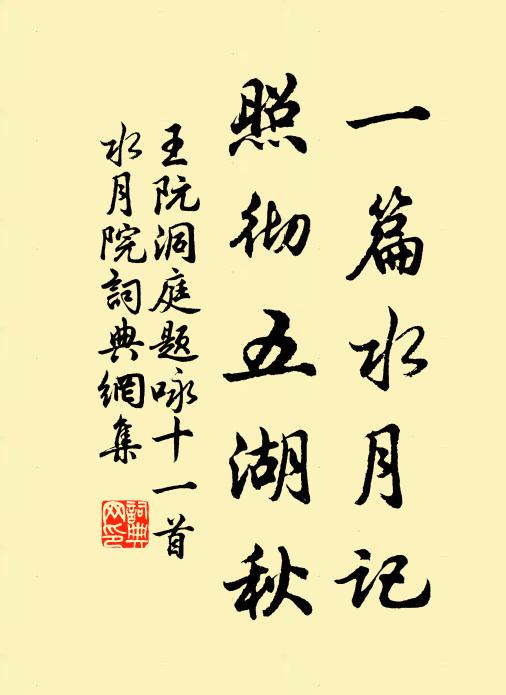 一篇水月记
照彻五湖秋
王阮洞庭题咏十一首
水月院詞典網集
詞典网印